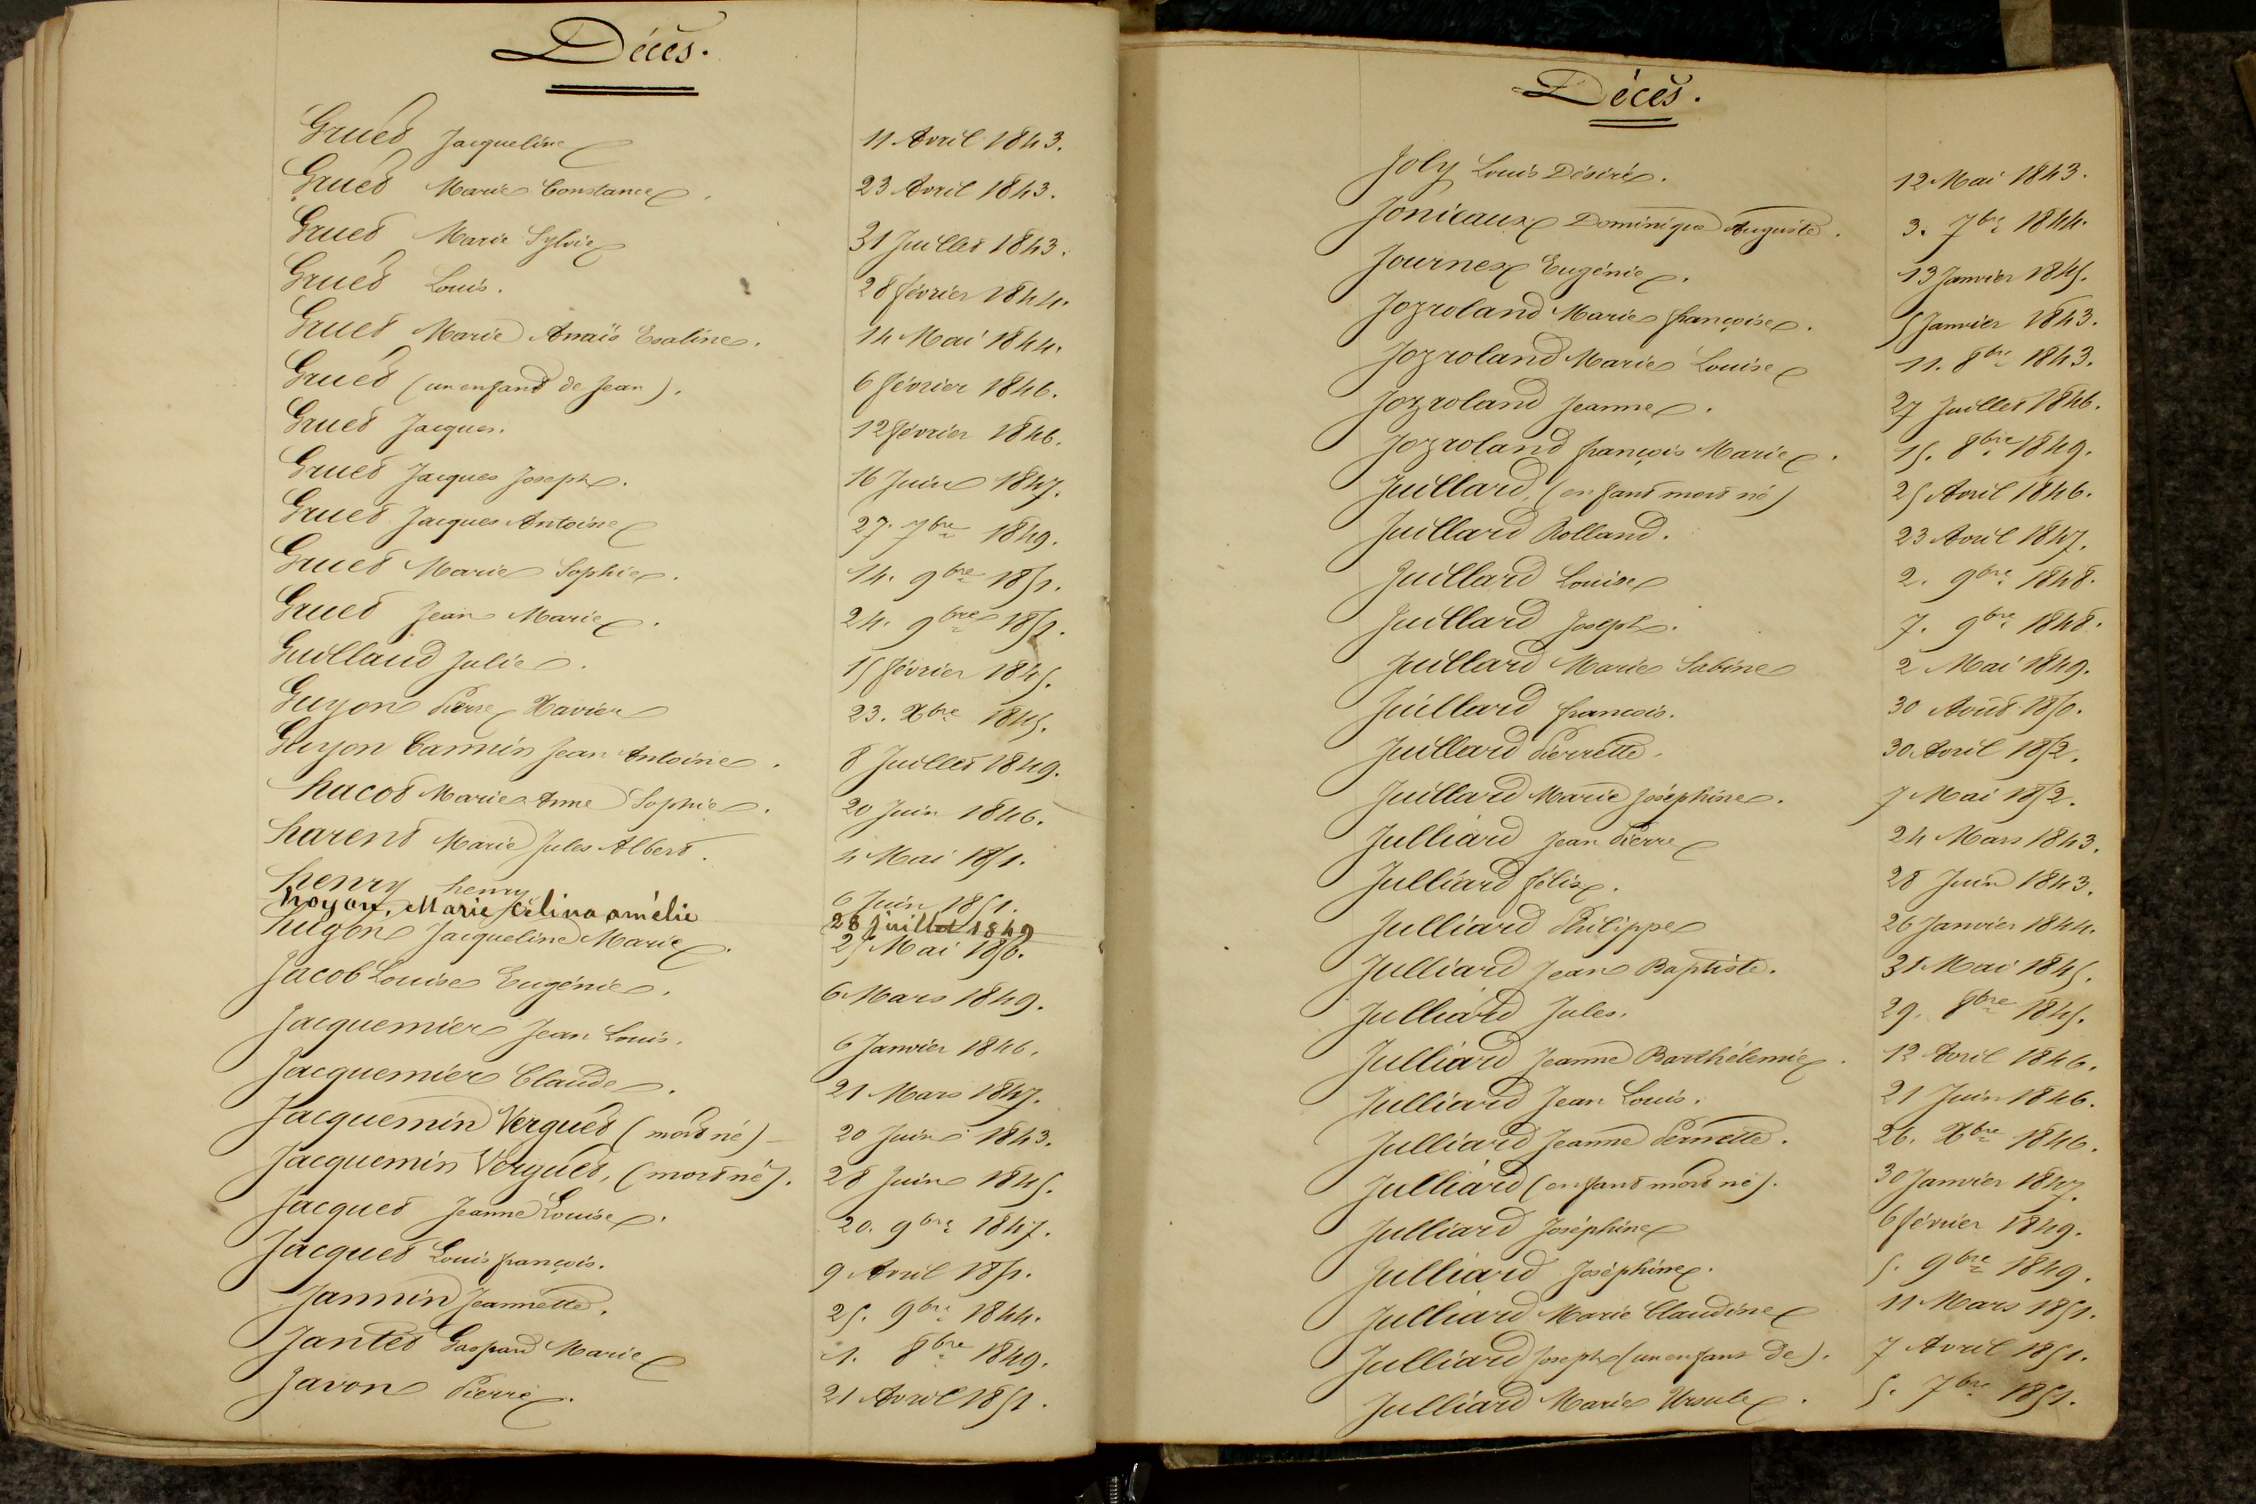 Décès.
Gruet Jacqueline 11 Avril 1843.
Gruet Marie Constance. 23 Avril 1843.
Gruet Marie Sylvie 31 Juillet 1843.
Gruet Louis. 28 février 1844.
Gruet Marie Anaïs Esaline. 14 Mai 1844.
Gruet (un enfant de Jean). 6 février 1846.
Gruet Jacques. 12 février 1846.
Gruet Jacques Joseph. 16 Juin 1847.
Gruet Jacques Antoine 27. 7bre 1849.
Gruet Marie Sophie. 14. 9bre 1851.
Gruet Jean Marie. 24. 9bre 1852.
Guilland Julie. 15 février 1845.
Guyon Pierre Xavier 23. Xbre 1845.
Guyon Cannin Jean Antoine. 8 Juillet 1849.
hacot Marie Anne Sophie. 20 Juin 1846.
harent Marie Jules Albert. 4 Mai 1851.
henry henry 6 Juin 1851.
hoyon, Marie Célina amélie 28 juillet 1849
hugon Jacqueline Marie. 25 Mai 1850.
Jacob Louise Eugénie. 6 Mars 1849.
Jacquemier Jean Louis. 6 Janvier 1846.
Jacquemier Claude. 21 Mars 1847.
Jacquemin Verguet (mort né) 20 Juin 1843.
Jacquemin Verguet, (mort né). 28 Juin 1845.
Jacquet Jeanne Louise. 20. 9bre 1847.
Jacquet Louis françois. 9 Avril 1851.
Jannin Jeannette. 25. 9bre 1844.
Jantet Gaspard Marie 1. 8bre 1849.
Javon Pierre. 21 Avril 1851.
Décès.
Joly Louis Désiré. 12 Mai 1843.
Jonicaux Dominique Auguste. 3. 7bre 1844.
Journex Eugénie. 13 Janvier 1845.
Jozroland Marie françoise. 5 Janvier 1843.
Jozroland Marie Louise 11. 8bre 1843.
Jozroland Jeanne. 27 Juillet 1846.
Jozroland françois Marie. 15. 8bre 1849.
Juillard, (enfant mort né) 25 Avril 1846.
Juillard Rolland. 23 Avril 1847.
Juillard Louise 2. 9bre 1848.
Juillard Joseph. 7. 9bre 1848.
Juillard Marie Sabine 2 Mai 1849.
Juillard françois. 30 Août 1850.
Juillard Pierrette. 30 Avril 1852.
Juillard Marie Joséphine. 7 Mai 1852.
Julliard Jean Pierre 24 Mars 1843.
Julliard félix. 28 Juin 1843.
Julliard Philippe 26 Janvier 1844.
Julliard Jean Baptiste. 31 Mai 1845.
Julliard Jules. 29. 8bre 1845.
Julliard Jeanne Barthélemie. 12 Avril 1846.
Julliard Jean Louis. 21 Juin 1846.
Julliard Jeanne Pernette. 26. Xbre 1846.
Julliard (enfant mort né). 30 Janvier 1847.
Julliard Joséphine 6 février 1849.
Julliard Joséphine. 5. 9bre 1849.
Julliard Marie Claudine 11 Mars 1851.
Julliard Joseph (un enfant de). 7 Avril 1851.
Julliard Marie Ursule. 5. 7bre 1851.